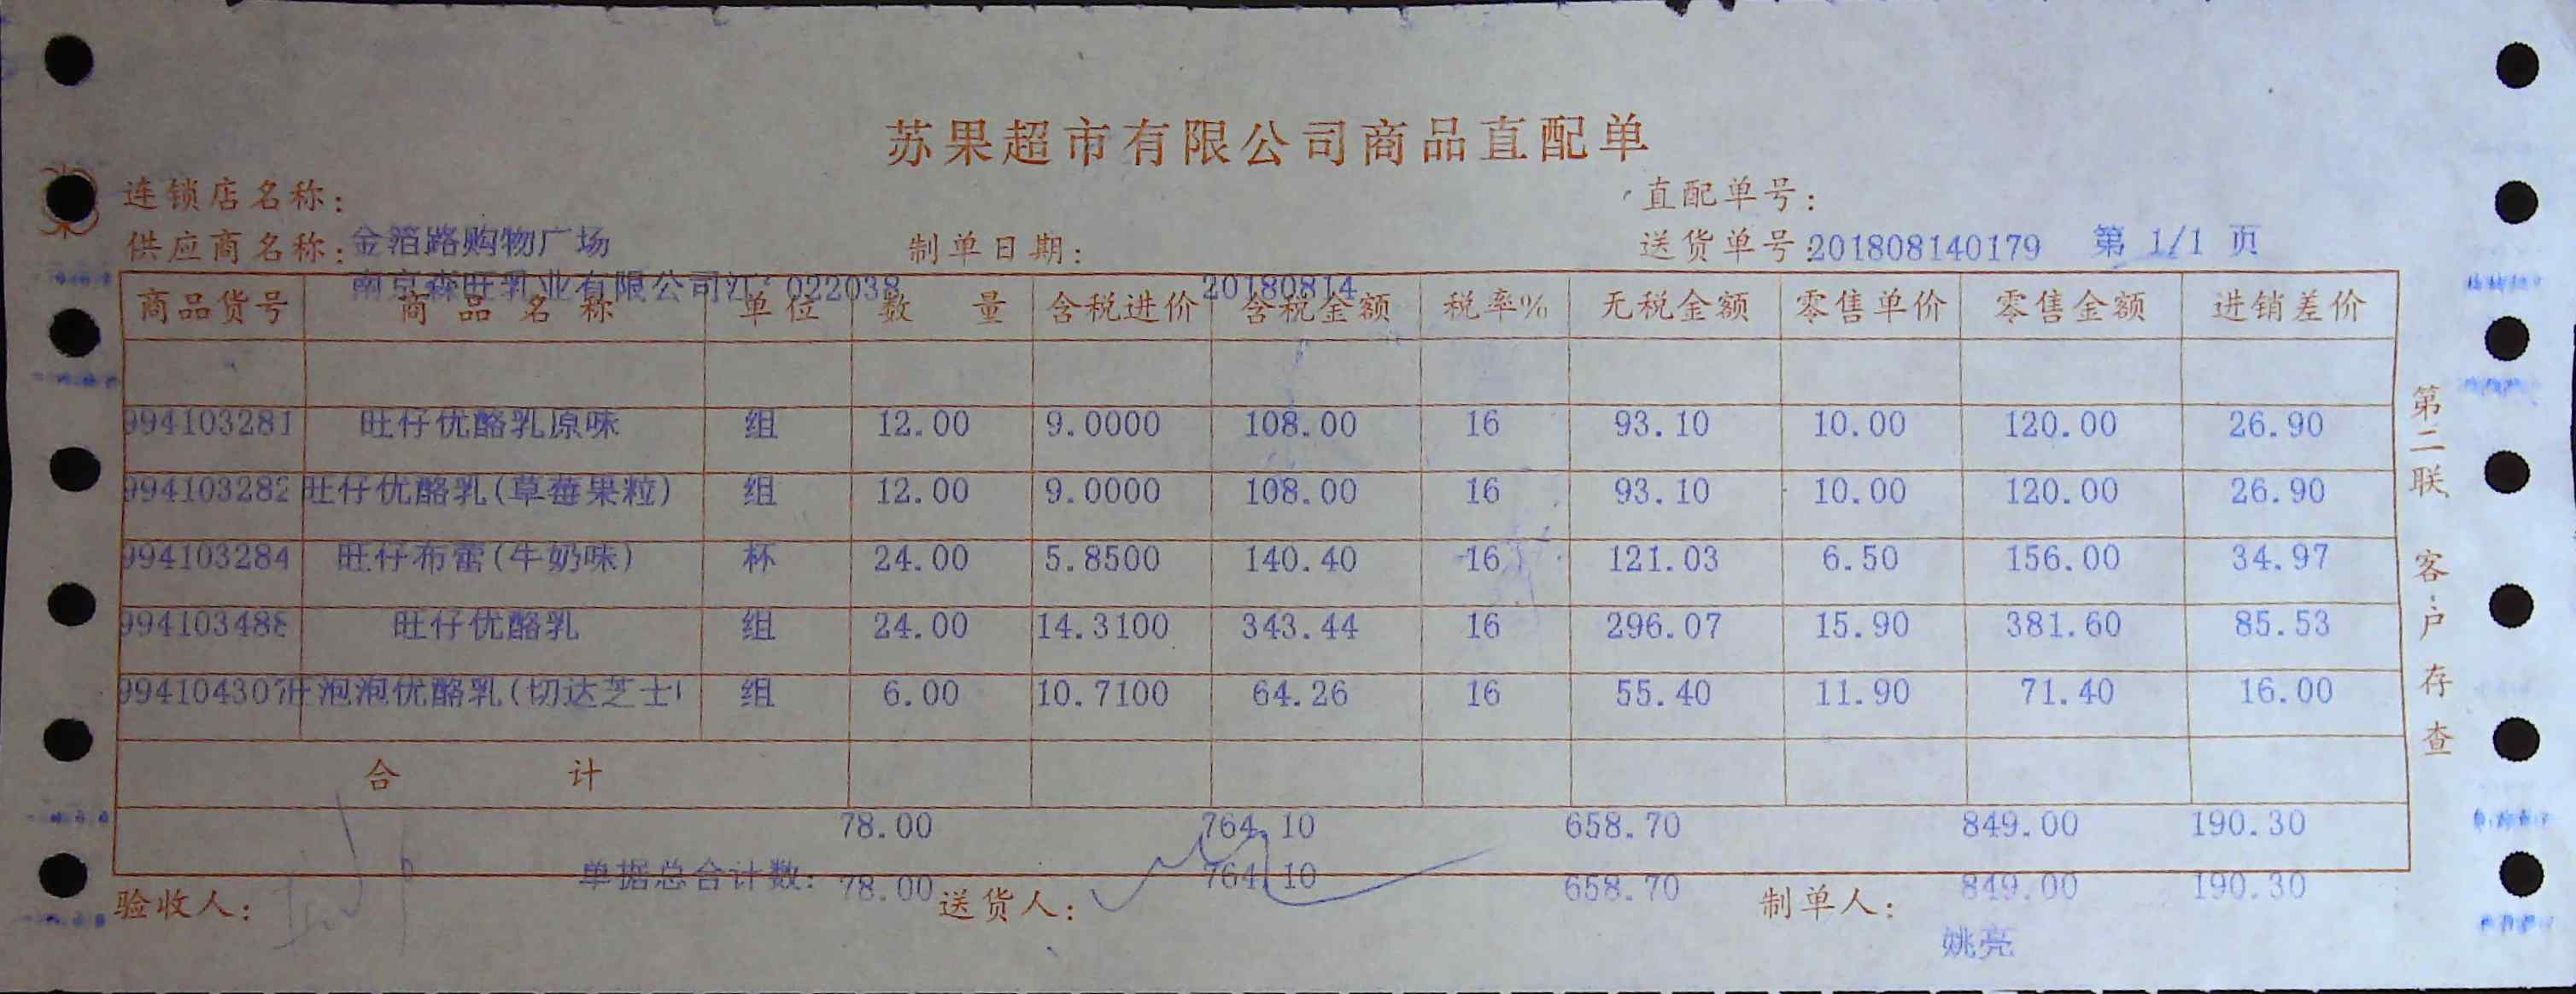 苏果超市有限公司商品直配单
连锁店名称: 直配单号:
供应商名称: 金箔路购物广场 制单日期: 送货单号: 201808140179 第 1/1 页
南京森旺乳业有限公司江 022038 20180814
商品货号 商品名称 单位 数量 含税进价 含税金额 税率% 无税金额 零售单价 零售金额 进销差价
994103281 旺仔优酪乳原味 组 12.00 9.0000 108.00 16 93.10 10.00 120.00 26.90
994103282 旺仔优酪乳(草莓果粒) 组 12.00 9.0000 108.00 16 93.10 10.00 120.00 26.90
994103284 旺仔布蕾(牛奶味) 杯 24.00 5.8500 140.40 16 121.03 6.50 156.00 34.97
994103488 旺仔优酪乳 组 24.00 14.3100 343.44 16 296.07 15.90 381.60 85.53
994104307 泡泡优酪乳(切达芝士 组 6.00 10.7100 64.26 16 55.40 11.90 71.40 16.00
合计
78.00 764.10 658.70 849.00 190.30
单据总合计数: 78.00 764.10 658.70 849.00 190.30
验收人: 送货人: 制单人:
姚亮
第二联 客户存查